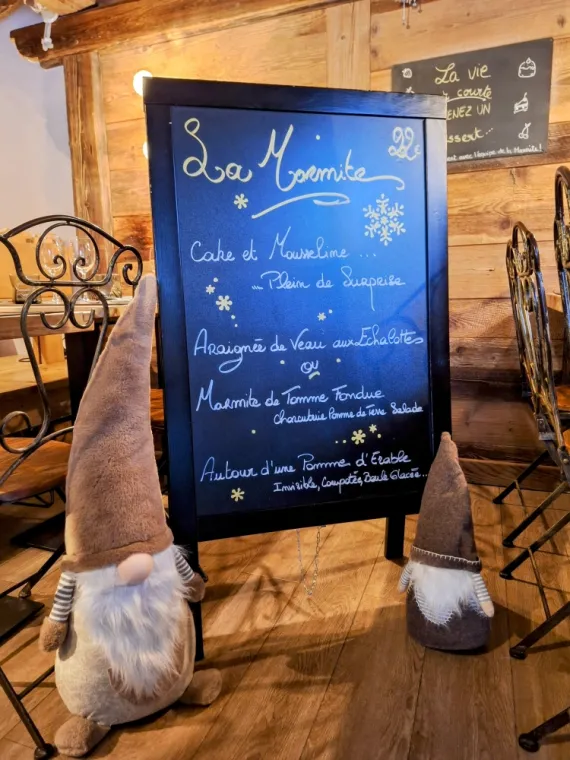 La Marmite 22€
Cake et Mousseline ...
... Plein de Surprise
Araignée de Veau aux Echalottes
ou
Marmite de Tomme Fondue
Charcuterie Pomme de Terre Salade
Autour d'une Pomme d'Erable
Invisible, Compotée, Boule Glacée...
La vie
courte
ENEZ UN
ssert...
avec l'équipe de la Marmite!